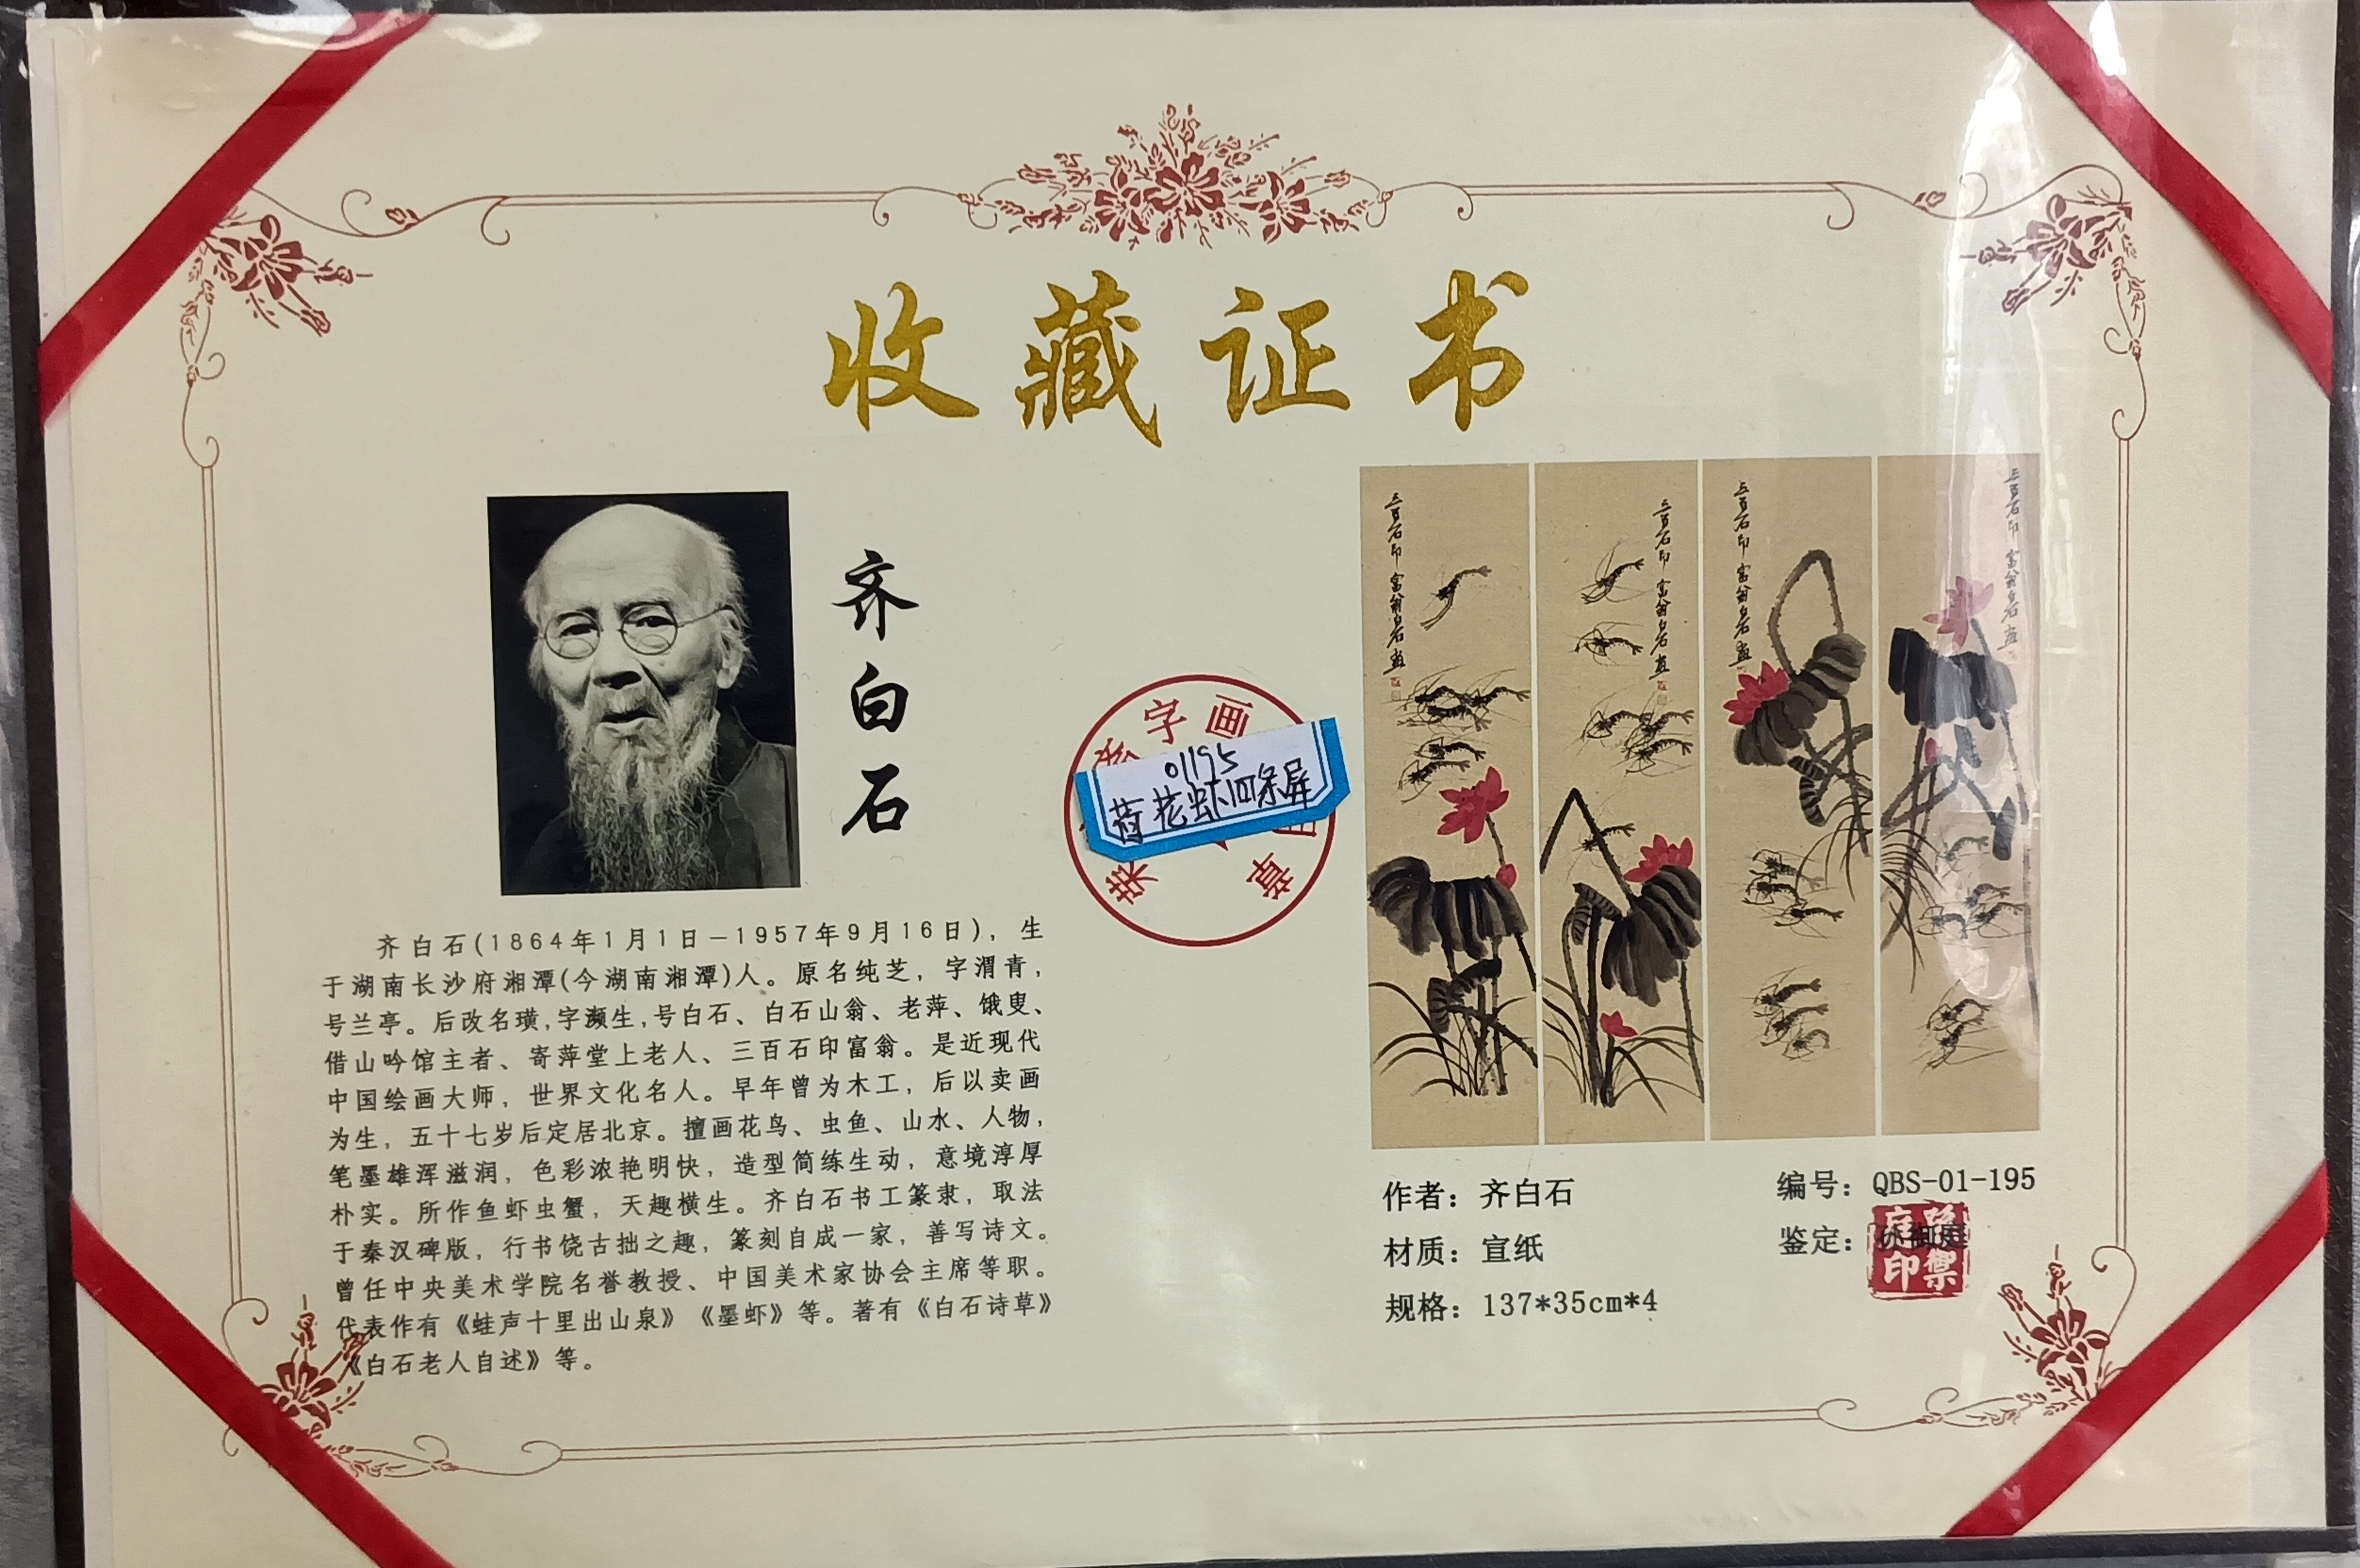 收藏证书
齐白石
齐白石(1864年1月1日－1957年9月16日)，生
于湖南长沙府湘潭(今湖南湘潭)人。原名纯芝，字渭青，
号兰亭。后改名璜,字濒生,号白石、白石山翁、老萍、饿叟、
借山吟馆主者、寄萍堂上老人、三百石印富翁。是近现代
中国绘画大师，世界文化名人。早年曾为木工，后以卖画
为生，五十七岁后定居北京。擅画花鸟、虫鱼、山水、人物，
笔墨雄浑滋润，色彩浓艳明快，造型简练生动，意境淳厚
朴实。所作鱼虾虫蟹，天趣横生。齐白石书工篆隶，取法
于秦汉碑版，行书饶古拙之趣，篆刻自成一家，善写诗文。
曾任中央美术学院名誉教授、中国美术家协会主席等职。
代表作有《蛙声十里出山泉》《墨虾》等。著有《白石诗草》
《白石老人自述》等。
字画
章
01195
荷花虾四条屏
三百石印富翁白石画
三百石印富翁白石画
三百石印富翁白石画
三百石印富翁白石画
作者：齐白石
材质：宣纸
规格：137*35cm*4
编号：QBS-01-195
鉴定：孙御庭